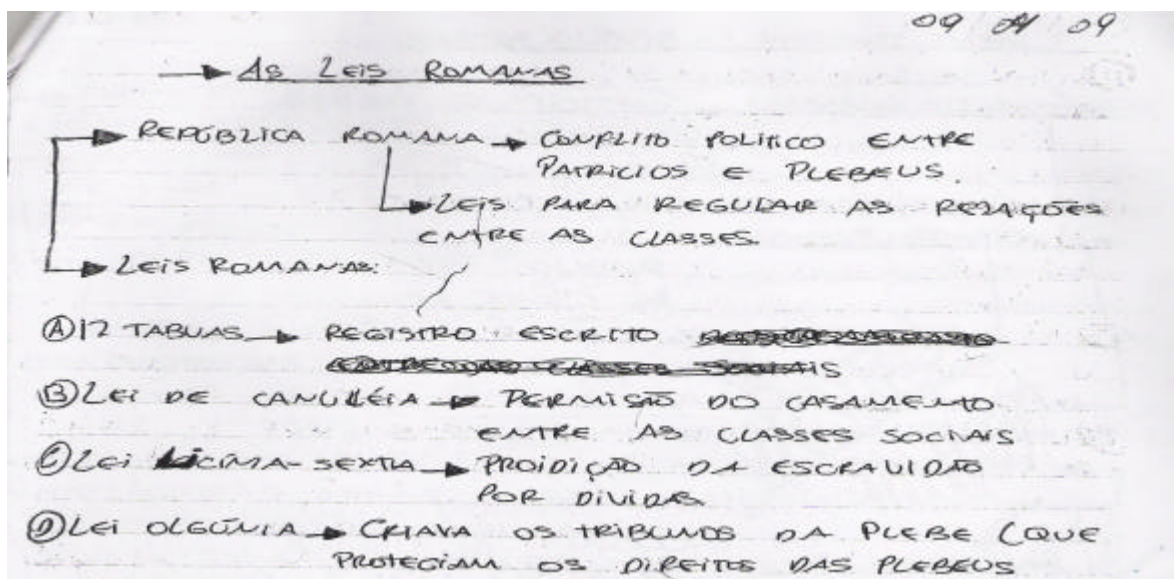 09/04/09
As Leis Romanas
República Romana → Conflito político entre
Patricios e Plebeus.
→ Leis para regular as relações
entre as classes.
→ Leis Romanas:
Ⓐ 12 Tabuas → Registro escrito
Ⓑ Lei de Canuléia → Permissão do casamento
entre as classes sociais
Ⓒ Lei Licínia-Sextia → Proidição da escravidão
por dívidas.
Ⓓ Lei Olgúnia → Criava os tribunos da Plebe (que
protegiam os direitos das plebeus